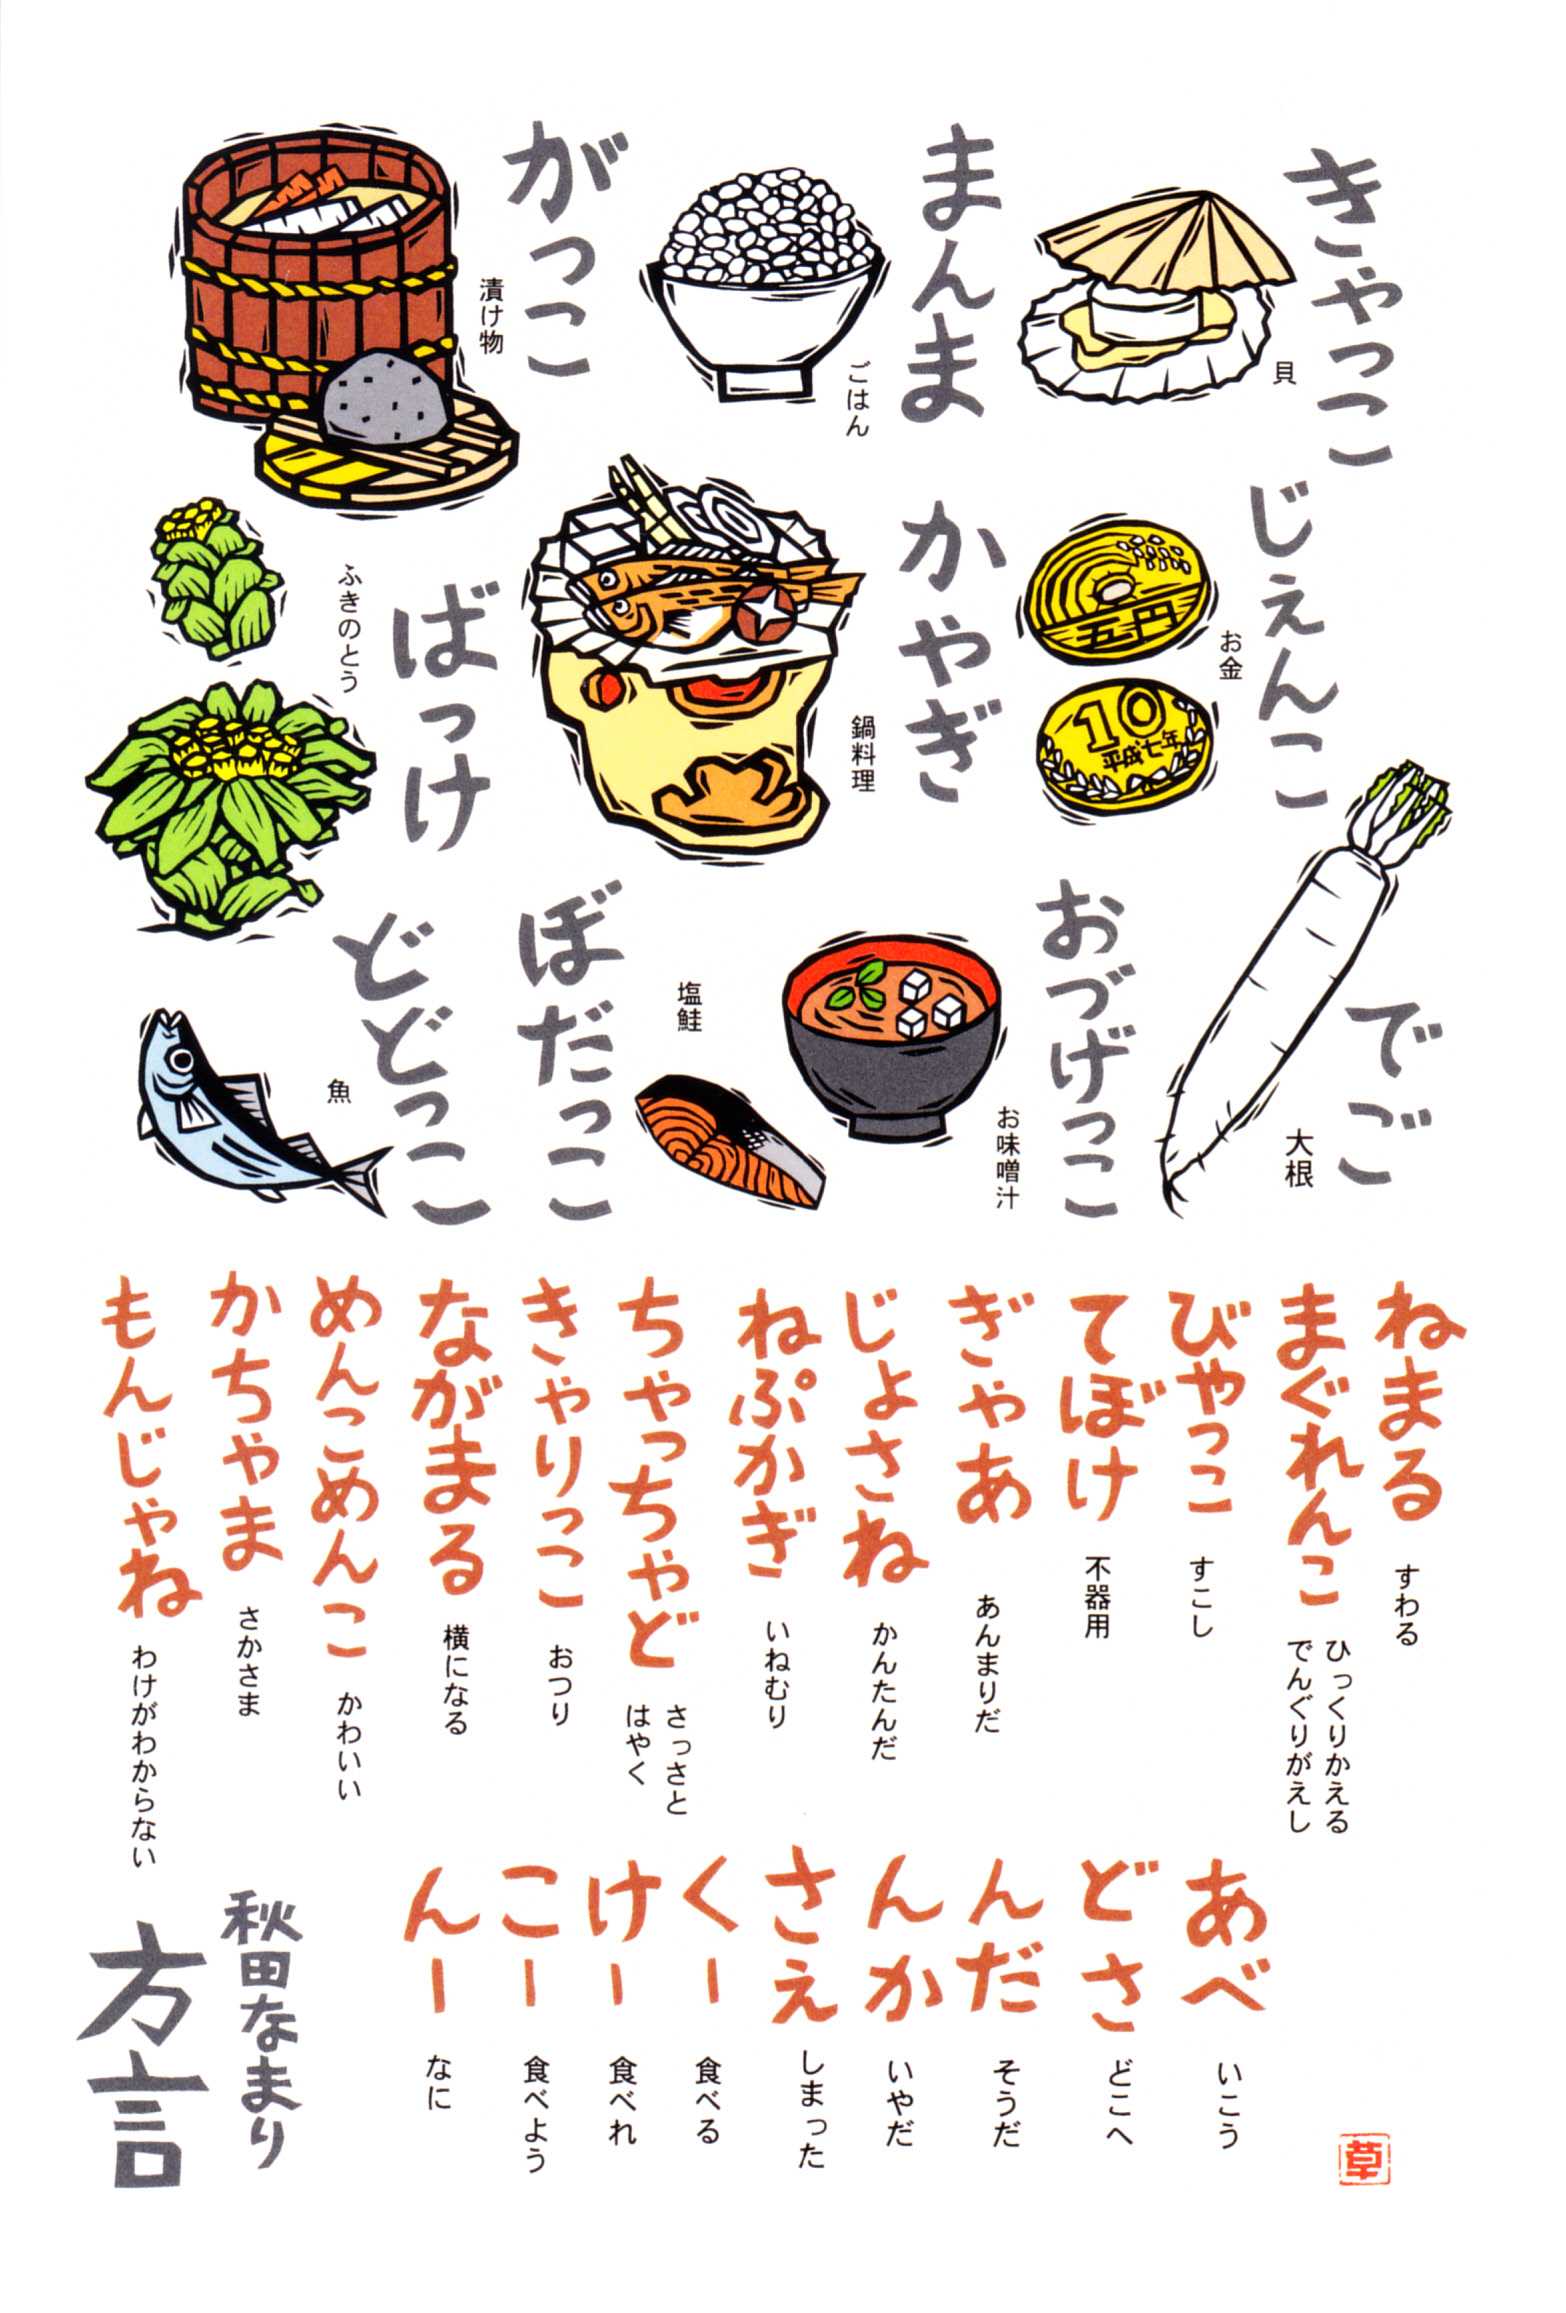 きゃっこ
貝
まんま
ごはん
がっこ
漬け物
じぇんこ
お金
五円
10
平成七年
かやぎ
鍋料理
ばっけ
ふきのとう
でご
大根
おづげっこ
お味噌汁
ぼだっこ
塩鮭
どどっこ
魚
ねまる
すわる
まぐれんこ
ひっくりかえる
でんぐりがえし
びゃっこ
すこし
てぼけ
不器用
ぎゃあ
あんまりだ
じょさね
かんたんだ
ねぷかぎ
いねむり
ちゃっちゃど
さっさと
はやく
きゃりっこ
おつり
ながまる
横になる
めんこめんこ
かわいい
かちゃま
さかさま
もんじゃね
わけがわからない
あべ
いこう
どさ
どこへ
んだ
そうだ
んか
いやだ
さえ
しまった
くー
食べる
けー
食べれ
こー
食べよう
んー
なに
秋田なまり
方言
草